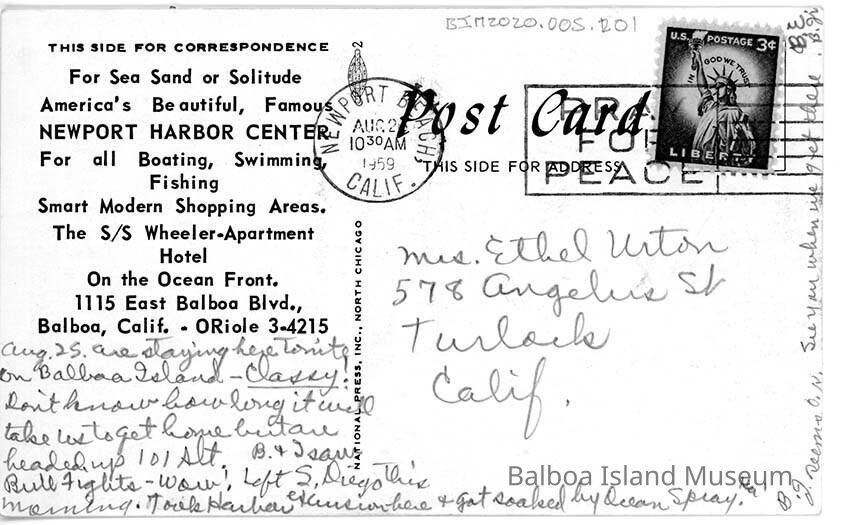 BIM2020.005.201
THIS SIDE FOR CORRESPONDENCE
For Sea Sand or Solitude
America's Beautiful, Famous
NEWPORT HARBOR CENTER
For all Boating, Swimming,
Fishing
Smart Modern Shopping Areas.
The S/S Wheeler-Apartment
Hotel
On the Ocean Front.
1115 East Balboa Blvd.,
Balboa, Calif. - ORiole 3-4215
Aug. 25. are staying here tonite
on Balboa Island - Classy!
Don't know how long it will
take us to get home but are
headed up 101 Alt. B. & I saw
Bull Fights - Wow! Left S. Diego this
morning. Took Harbor excursion here & got soaked by Ocean Spray.
2
NATIONAL PRESS, INC., NORTH CHICAGO
NEWPORT BEACH,
AUG 2
10 30 AM
1959
CALIF.
Post Card
THIS SIDE FOR ADDRESS
PRAY
FOR
PEACE
U.S. POSTAGE 3¢
IN GOD WE TRUST
LIBERTY
Mrs. Ethel Urton
578 Angelus St
Turlock
Calif.
See you when we get there
Balboa Island Museum